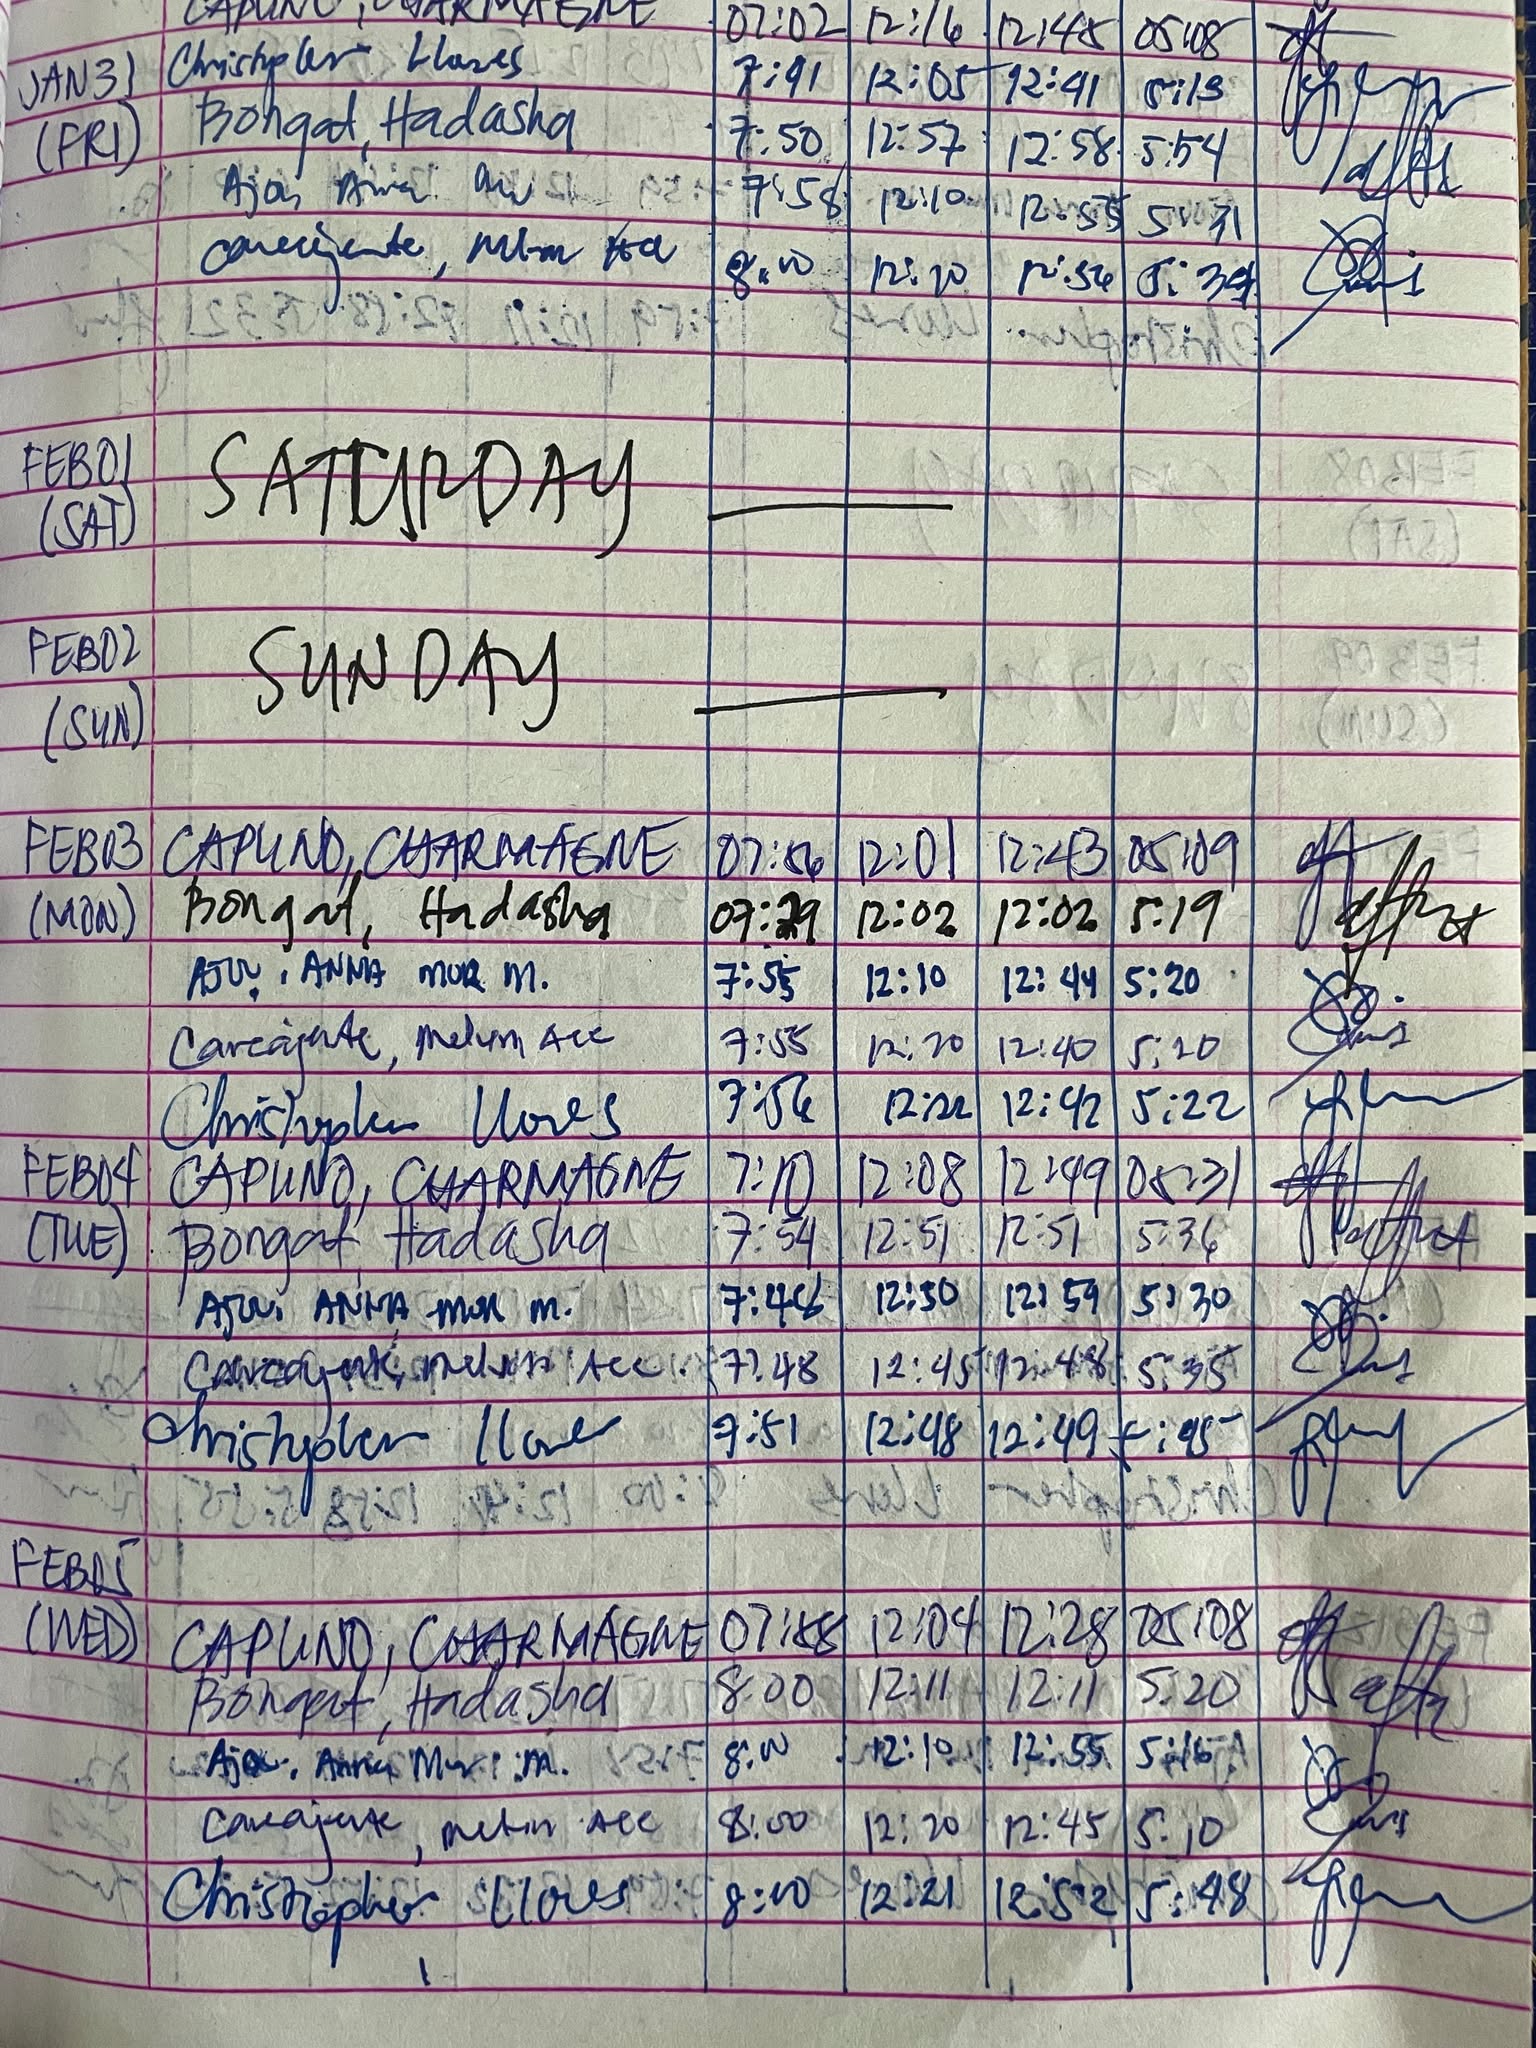 CAPUNO, CHARMAGNE 07:02 12:16 12:45 05:08
JAN 31 Christopher Llanes 7:41 12:05 12:41 5:13
(FRI) Bongat, Hadasha 7:50 12:57 12:58 5:54
7:58 12:10 12:55 5:31
8:00 12:20 12:56 5:34
FEB 01 SATURDAY
(SAT)
FEB 02 SUNDAY
(SUN)
FEB 03 CAPUNO, CHARMAGNE 07:56 12:01 12:43 05:09
(MON) Bongat, Hadasha 07:29 12:02 12:02 5:19
ANNA MOR M. 7:55 12:10 12:44 5:20
Carcajente, Melvin Ace 7:55 12:20 12:40 5:20
Christopher Llanes 7:56 12:22 12:42 5:22
FEB 04 CAPUNO, CHARMAGNE 7:10 12:08 12:49 05:31
(TUE) Bongat, Hadasha 7:54 12:51 12:51 5:36
ANNA MOR M. 7:48 12:50 12:59 5:30
Carcajente, Melvin Ace 7:48 12:45 12:48 5:35
Christopher Llanes 7:51 12:48 12:49
FEB 05
(WED) CAPUNO, CHARMAGNE 07:58 12:04 12:28 05:08
Bongat, Hadasha 8:00 12:11 12:11 5:20
Anna Mor M. 8:00 12:10 12:55 5:16
Carcajente, Melvin Ace 8:00 12:20 12:45 5:10
Christopher Llanes 8:00 12:21 12:52 5:48